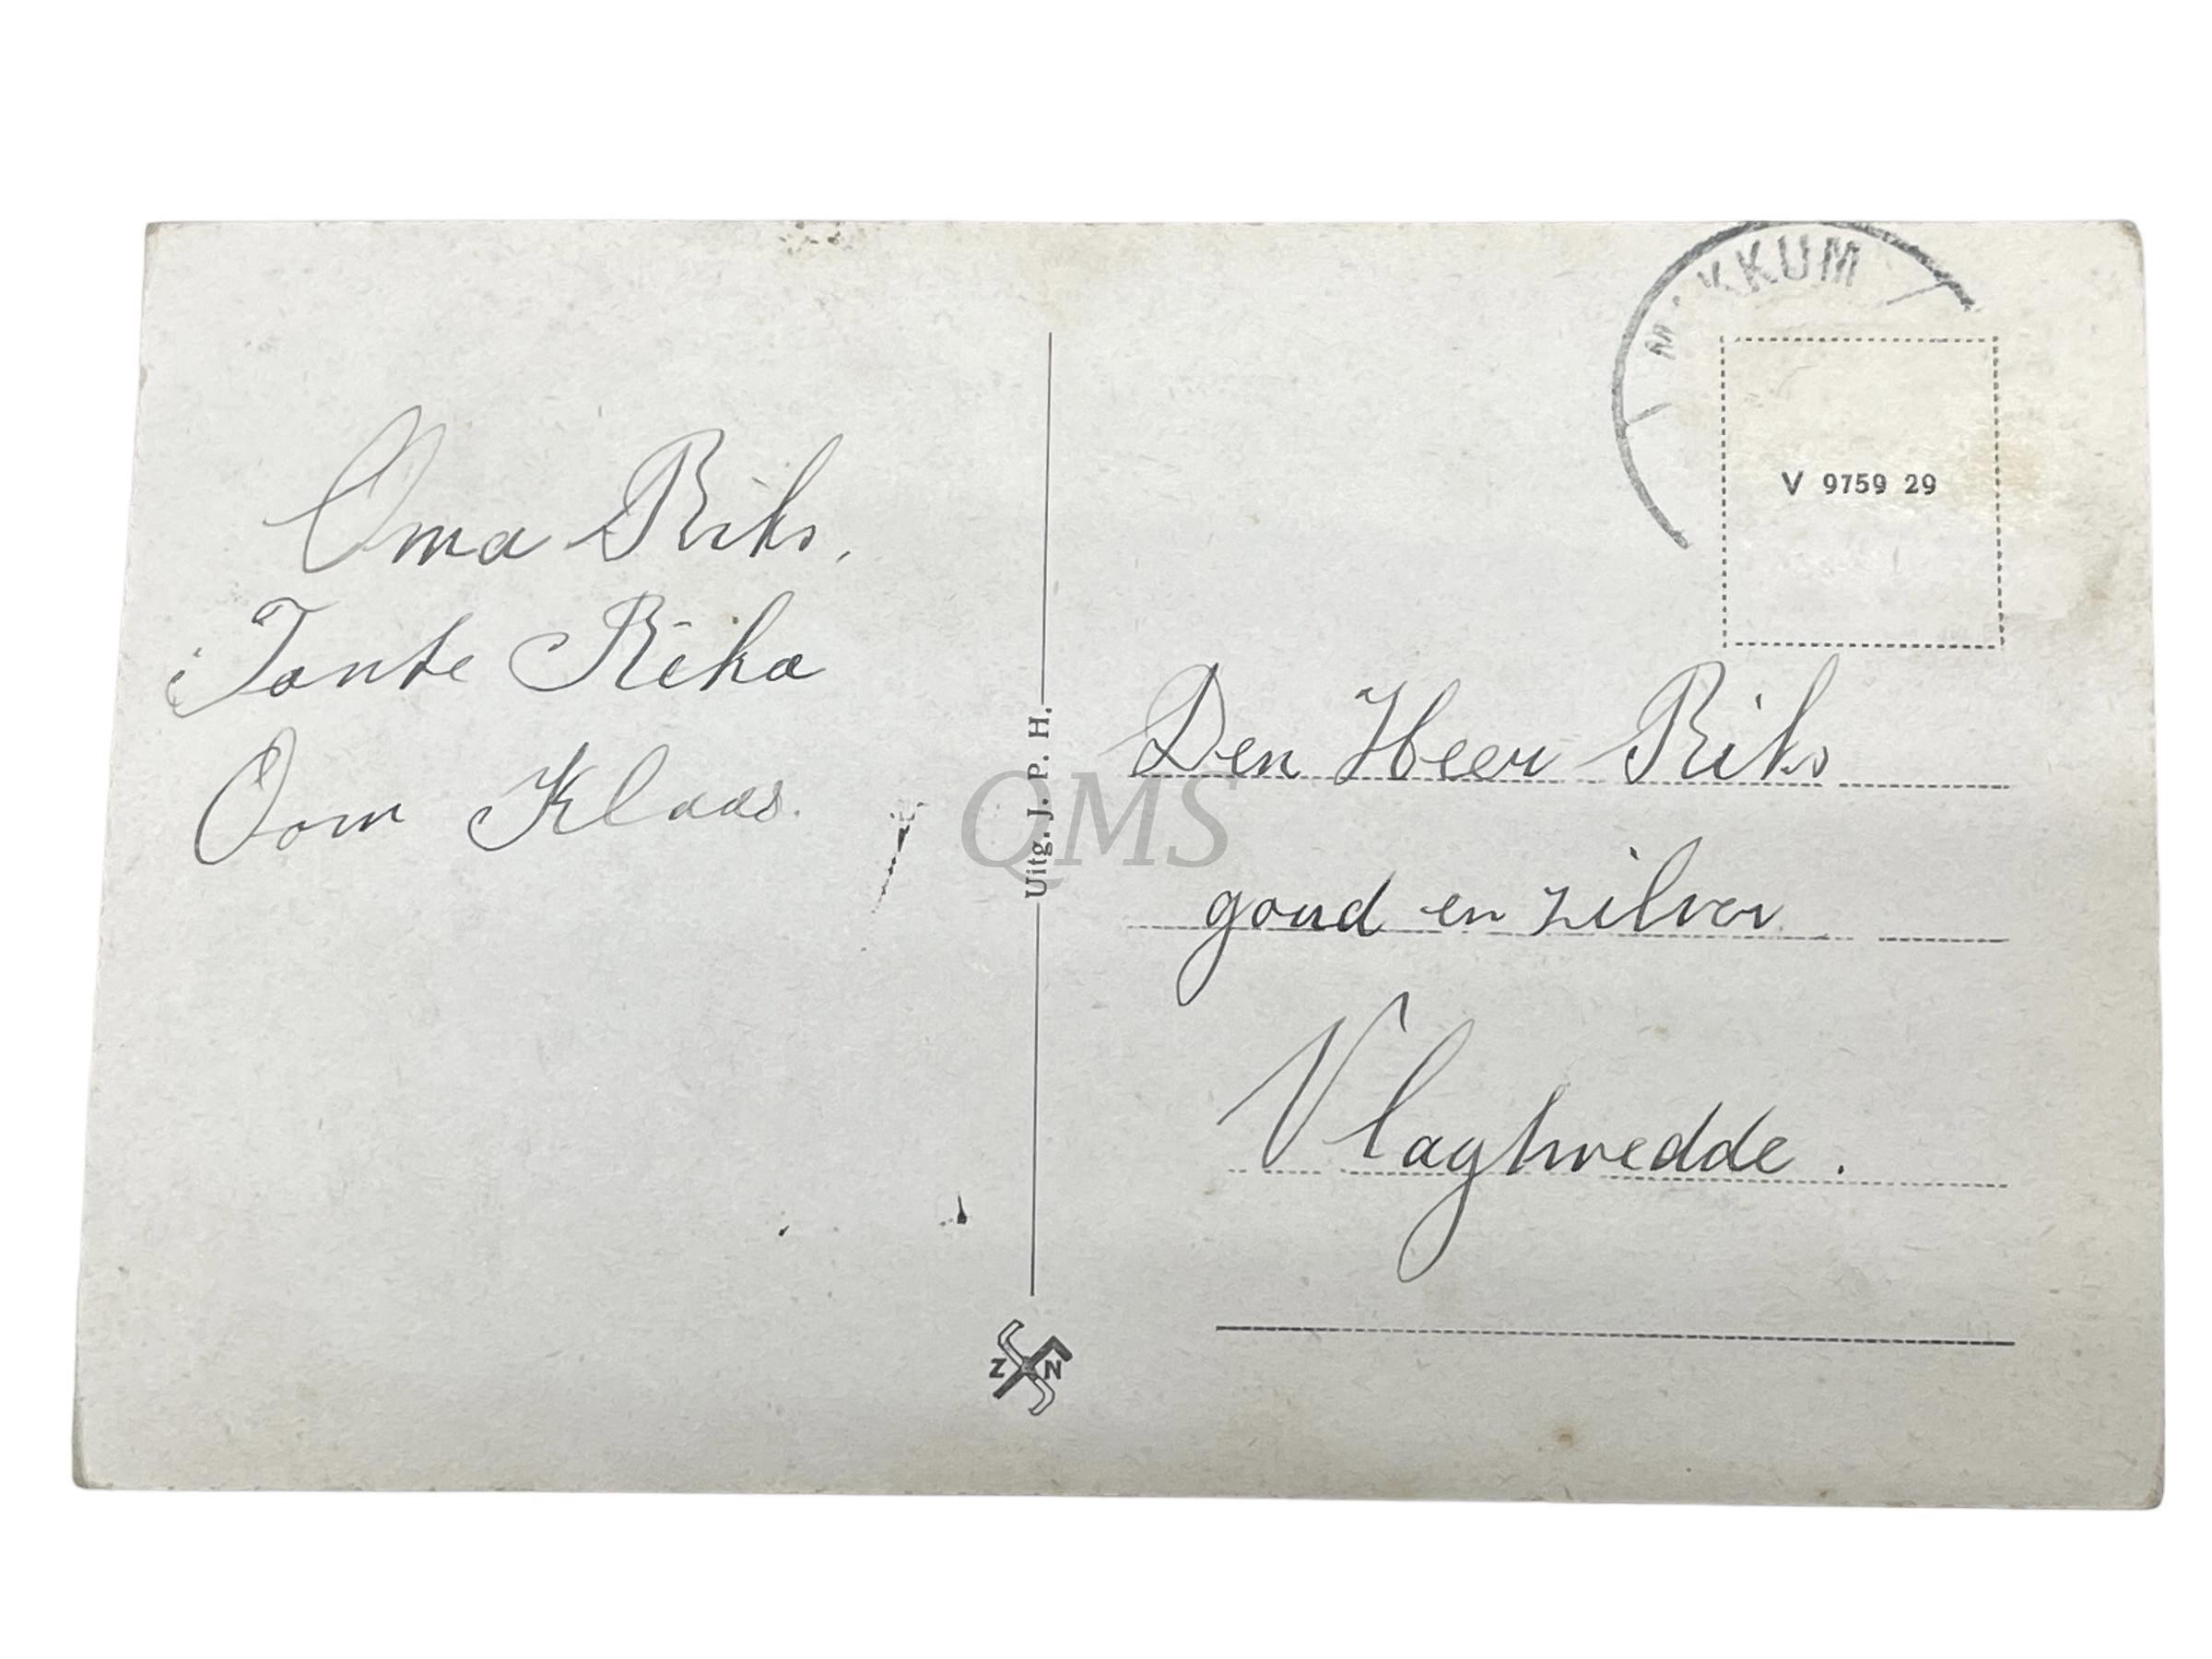 Oma Riks,
Tante Rika
Oom Klaas.
Uitg. J. P. H.
QMS
Z N
KKUM
V 9759 29
Den Heer Riks
goud en zilver
Vlaghwedde.